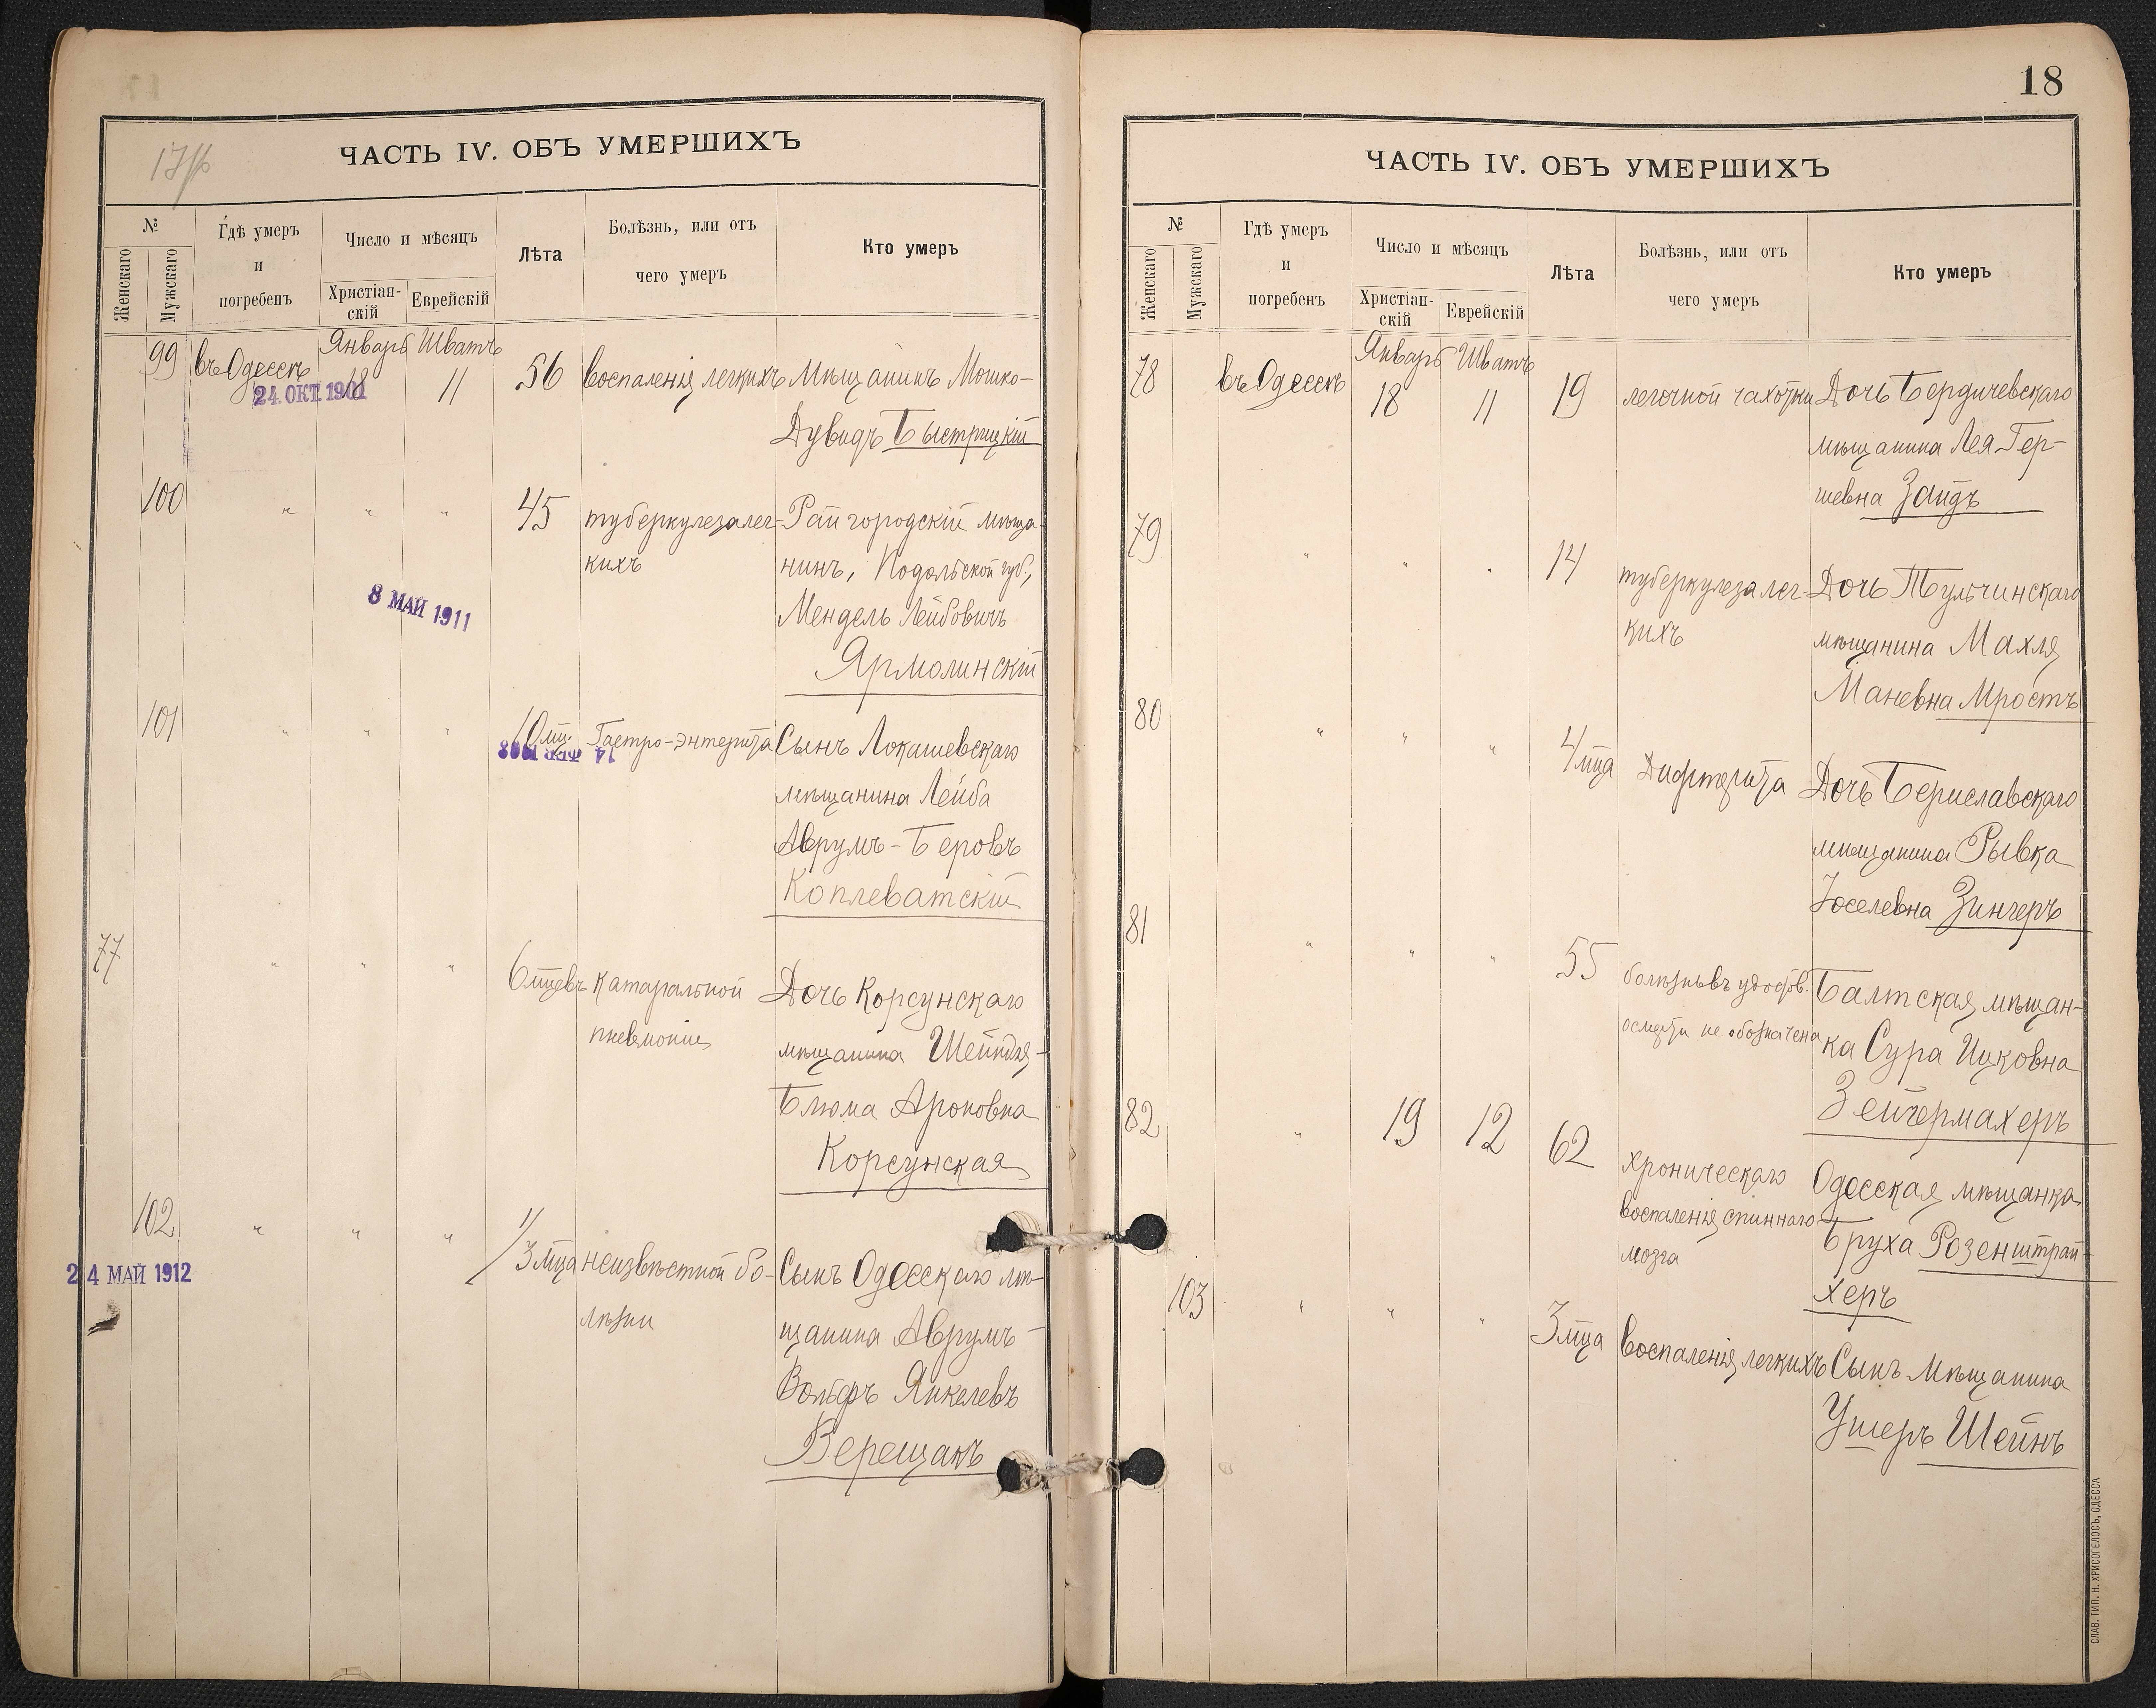 17об
ЧАСТЬ IV. ОБЪ УМЕРШИХЪ
№
Женскаго
Мужскаго
Гдѣ умеръ
и
погребенъ
Число и мѣсяцъ
Христіан-
скій
Еврейскій
Лѣта
Болѣзнь, или отъ
чего умеръ
Кто умеръ
Январь Шватъ
99 въ Одессѣ 18 11 56 воспаленія легкихъ Мѣщанинъ Мошко-
24. ОКТ. 1901
Дувидъ Быстрицкій
100 " " " 45 туберкулеза лег- Райгородскій мѣща-
кихъ нинъ, Подольской губ.,
8 МАЙ 1911
Мендель Лейбовичъ
Ярмолинскій
101 " " " 10 мц. Гастро-энтерита Сынъ Локашевскаго
14 ФЕВ 1908
мѣщанина Лейба
Аврумъ-Беровъ
Коплеватскій
77 " " " 6 мцевъ катаральной Дочь Корсунскаго
пневмоніи мѣщанина Шейндля-
Блюма Ароновна
Корсунская
102 " " " 1/3 мца неизвѣстной бо- Сынъ Одесскаго мѣ-
24 МАЙ 1912
лѣзни щанина Аврумъ-
Вольфъ Янкелевъ
Верещакъ
18
ЧАСТЬ IV. ОБЪ УМЕРШИХЪ
№
Женскаго
Мужскаго
Гдѣ умеръ
и
погребенъ
Число и мѣсяцъ
Христіан-
скій
Еврейскій
Лѣта
Болѣзнь, или отъ
чего умеръ
Кто умеръ
Январь Шватъ
78 въ Одессѣ 18 11 19 легочной чахотки Дочь Бердичевскаго
мѣщанина Лея Гер-
шевна Зайдъ
79 " " " 14 туберкулеза лег- Дочь Тульчинскаго
кихъ мѣщанина Махля
Маневна Мростъ
80 " " " 4 мца Дифтерита Дочь Бериславскаго
мѣщанина Рывка
Іоселевна Зингеръ
81 " " " 55 болѣзнь въ удостов. Балтская мѣщан-
о смерти не обозначена ка Сура Ицковна
Зейгермахеръ
82 " 19 12 62 хроническаго Одесская мѣщанка
воспаленія спиннаго Бруха Розенштрай-
мозга херъ
103 " " " 3 мца воспаленія легкихъ Сынъ мѣщанина
Ушеръ Шейнъ
СЛАВ. ТИП. Н. ХРИСОГЕЛОСЪ, ОДЕССА